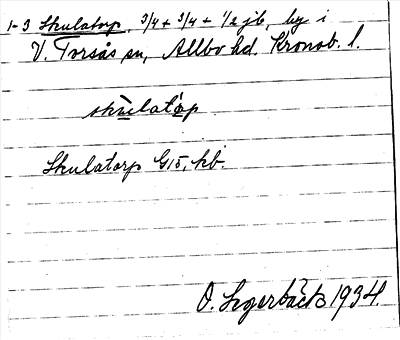 1-3 Skulatorp, 3/4 + 3/4 + 1/2 jb, by i
V. Torsås sn, Allbo hd. Kronob. l.
skulatåp
Skulatorp G15, kb.
O. Segerbäck 1934.